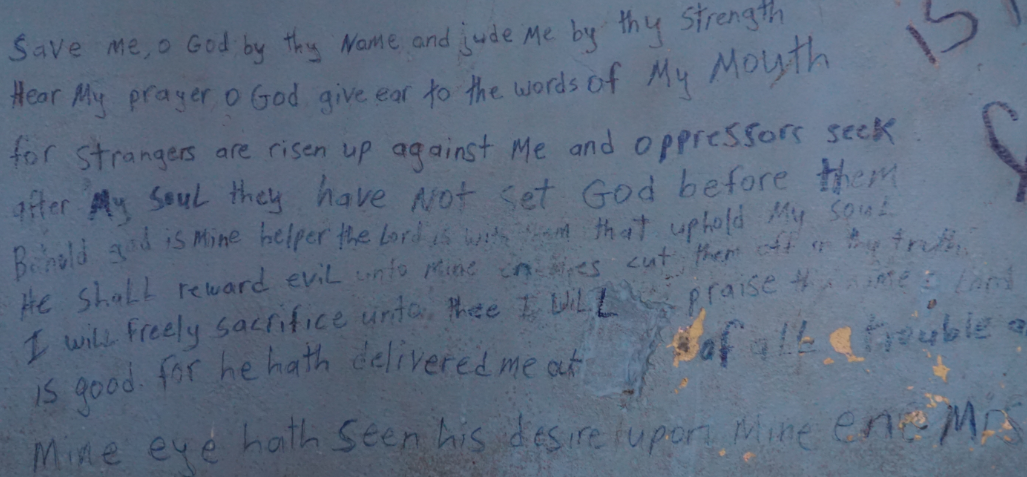 Save me, o God by thy Name and jude Me by thy Strength
Hear My prayer o God give ear to the words of My Mouth
for Strangers are risen up against Me and oppressors seek
after My Soul they have Not set God before them
Behold god is Mine helper the Lord is with them that uphold My soul
He shall reward evil unto Mine enemies cut them off in thy truth
I will freely sacrifice unto thee I will praise thy name Lord
is good for he hath delivered me out of all trouble
Mine eye hath Seen his desire upon Mine